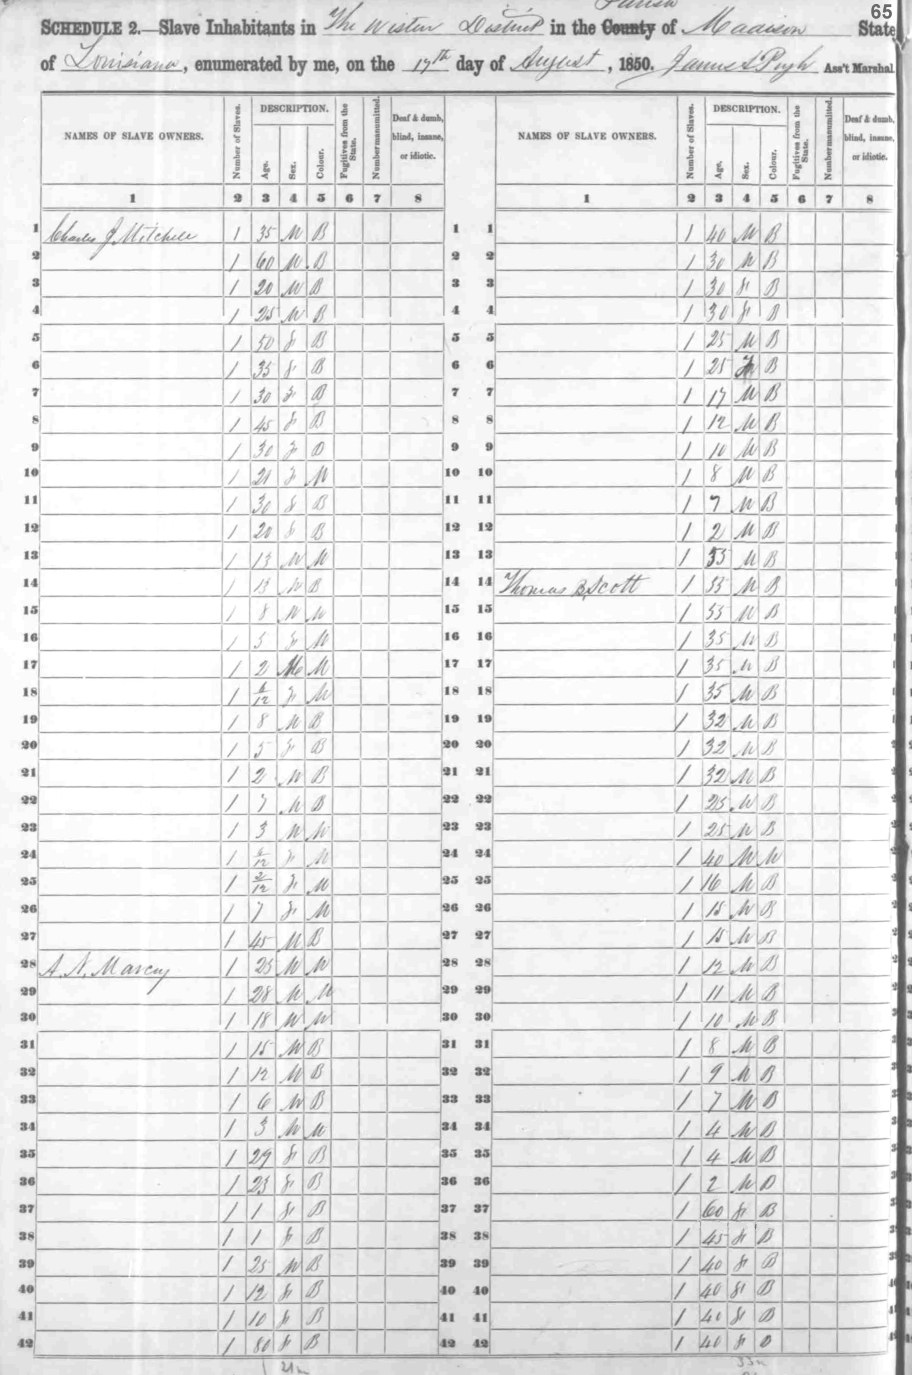 65
Parish
SCHEDULE 2.—Slave Inhabitants in The Western District in the County of Madison State
of Louisiana, enumerated by me, on the 17th day of August, 1850. James S Pugh Ass't Marshal
NAMES OF SLAVE OWNERS. Number of Slaves. DESCRIPTION. Age. Sex. Colour. Fugitives from the State. Number manumitted. Deaf & dumb, blind, insane, or idiotic. NAMES OF SLAVE OWNERS. Number of Slaves. DESCRIPTION. Age. Sex. Colour. Fugitives from the State. Number manumitted. Deaf & dumb, blind, insane, or idiotic.
1 2 3 4 5 6 7 8 1 2 3 4 5 6 7 8
1 Charles J Mitchell 1 35 M B 1 1 1 40 M B
2 1 60 M B 2 2 1 30 M B
3 1 20 M B 3 3 1 30 F B
4 1 25 M B 4 4 1 30 F B
5 1 50 F B 5 5 1 25 M B
6 1 35 F B 6 6 1 25 F B
7 1 30 F B 7 7 1 17 M B
8 1 45 F B 8 8 1 12 M B
9 1 30 F B 9 9 1 10 M B
10 1 21 F M 10 10 1 8 M B
11 1 30 F B 11 11 1 7 M B
12 1 20 F B 12 12 1 2 M B
13 1 13 M M 13 13 1 55 M B
14 1 13 M B 14 14 Thomas B Scott 1 55 M B
15 1 8 M M 15 15 1 55 M B
16 1 5 F M 16 16 1 35 M B
17 1 2 M M 17 17 1 35 M B
18 1 6/12 F M 18 18 1 35 M B
19 1 8 M B 19 19 1 32 M B
20 1 5 F B 20 20 1 32 M B
21 1 2 M B 21 21 1 32 M B
22 1 7 M B 22 22 1 25 M B
23 1 3 M M 23 23 1 25 M B
24 1 /12 F M 24 24 1 40 M M
25 1 /12 F M 25 25 1 16 M B
26 1 7 F M 26 26 1 15 M B
27 1 45 M B 27 27 1 15 M B
28 A. N. Marcy 1 25 M M 28 28 1 12 M B
29 1 28 M M 29 29 1 11 M B
30 1 18 M M 30 30 1 10 M B
31 1 15 M B 31 31 1 8 M B
32 1 12 M B 32 32 1 9 M B
33 1 6 M B 33 33 1 7 M B
34 1 3 M M 34 34 1 4 M B
35 1 29 F B 35 35 1 4 M B
36 1 25 F B 36 36 1 2 M B
37 1 1 F B 37 37 1 60 F B
38 1 1 F B 38 38 1 45 F B
39 1 25 M B 39 39 1 40 F B
40 1 12 F B 40 40 1 40 F B
41 1 10 F B 41 41 1 40 F B
42 1 80 F B 42 42 1 40 F B
21m 33m